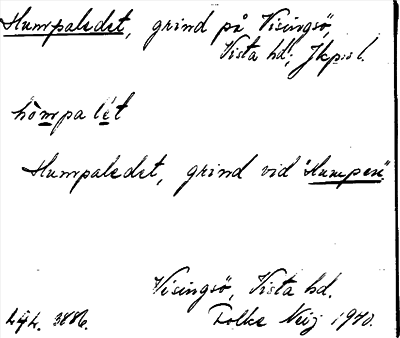 Humpaledet, grind på Visingsö,
Vista hd; Jkps l.
hòmpa lèt
Humpaledet, grind vid "Humpen".
Visingsö, Vista hd.
3886. Folke Neij 1940.